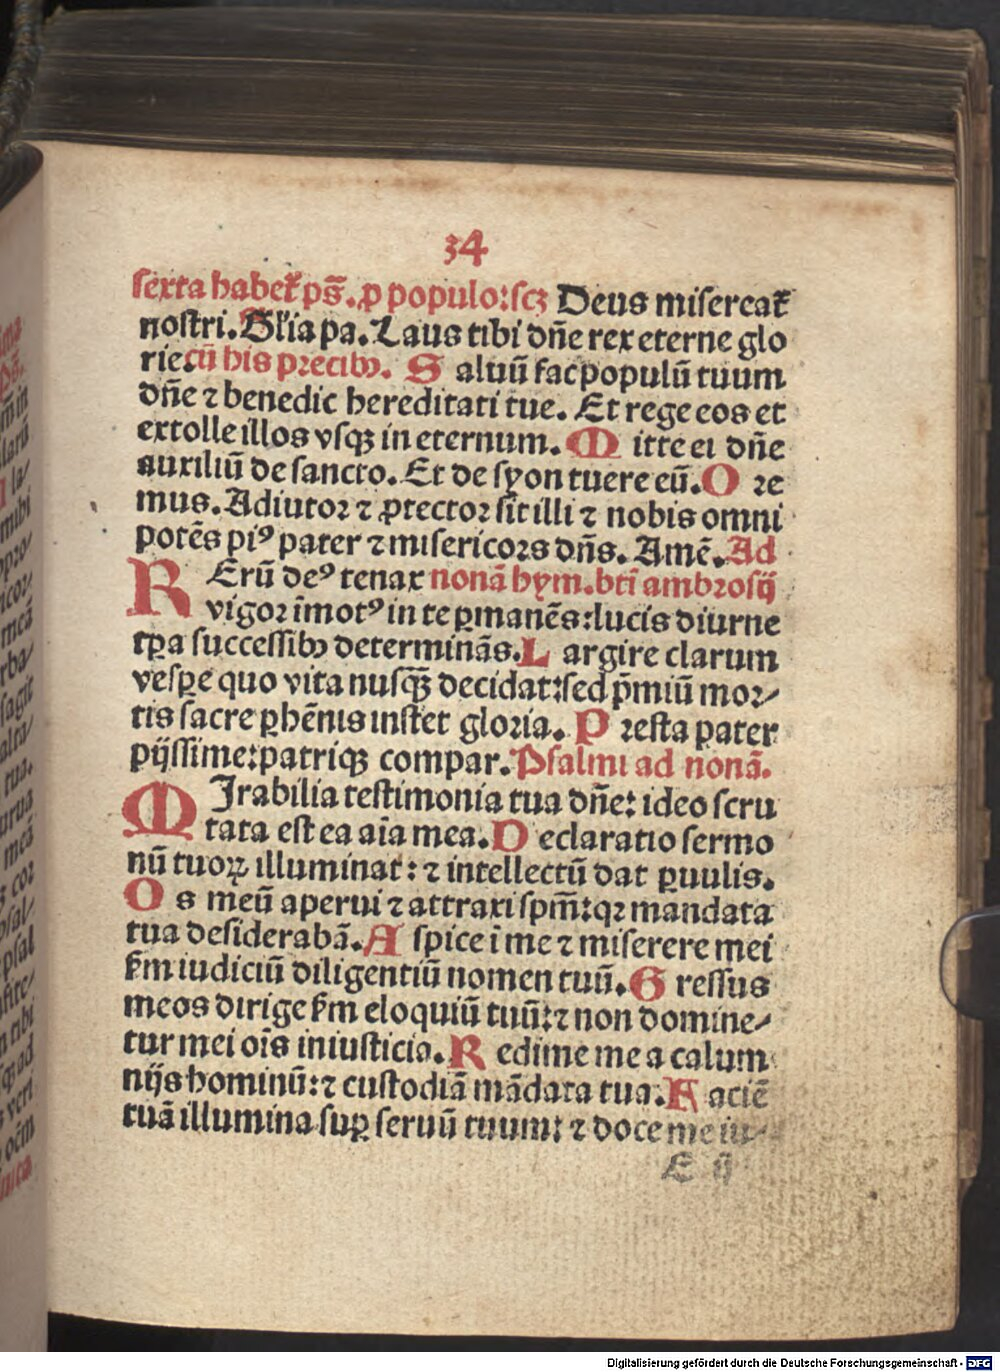 34
sexta habet᷑ ps̄. ꝓ populo: scꝫ Deus misereat᷑
nostri. Gl'ia pa. Laus tibi dn̄e rex eterne glo
rie. cū his precibꝰ. S aluū fac populū tuum
dn̄e ⁊ benedic hereditati tue. Et rege eos et
extolle illos vsqꝫ in eternum. M itte ei dn̄e
auxiliū de sancto. Et de syon tuere eū. O re
mus. Adiutor ⁊ ꝓtector sit illi ⁊ nobis omni
potēs piꝰ pater ⁊ misericors dn̄s. Amē. Ad
REꝛū deꝰ tenax nonā hym. bti ambrosij
vigor īmotꝰ in te ꝑmanēs: lucis diurne
tꝑa successibꝰ determinās. L argire clarum
vesꝑe quo vita nusqꝫ̄ decidat: sed p̄miū mor⸗
tis sacre ꝑhēnis instet gloria. P resta pater
pijssime: patriqꝫ compar. Psalmi ad nonā.
MIrabilia testimonia tua dn̄e: ideo scru
tata est ea aīa mea. D eclaratio sermo
nū tuoꝝ illuminat: ⁊ intellectū dat ꝑuulis.
O s meū aperui ⁊ attraxi spm̄: qꝛ mandata
tua desiderabā. A spice ī me ⁊ miserere mei
ẜm iudiciū diligentiū nomen tuū. G ressus
meos dirige ẜm eloquiū tuū: ⁊ non domine⸗
tur mei oīs iniusticia. R edime me a calum
nijs hominū: ⁊ custodiā mādata tua. F aciē
tuā illumina suꝑ seruū tuum: ⁊ doce me iu⸗
E ij
Digitalisierung gefördert durch die Deutsche Forschungsgemeinschaft - DFG